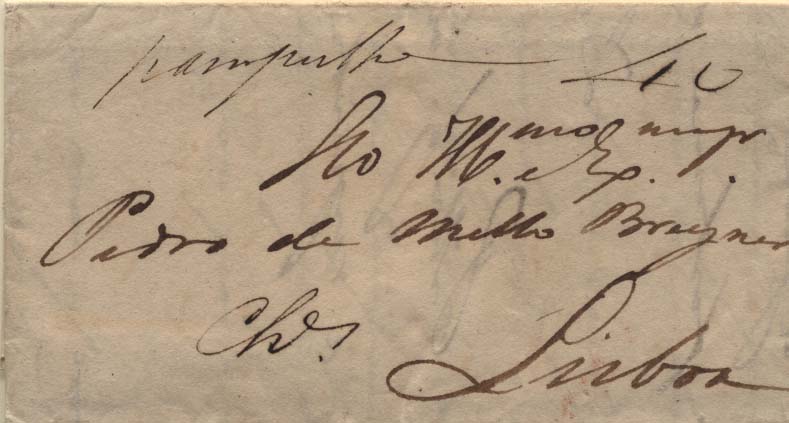 pampulha 40
Ao Illmo e Exmo Snr
Pedro de Mello Breyner
Lisboa